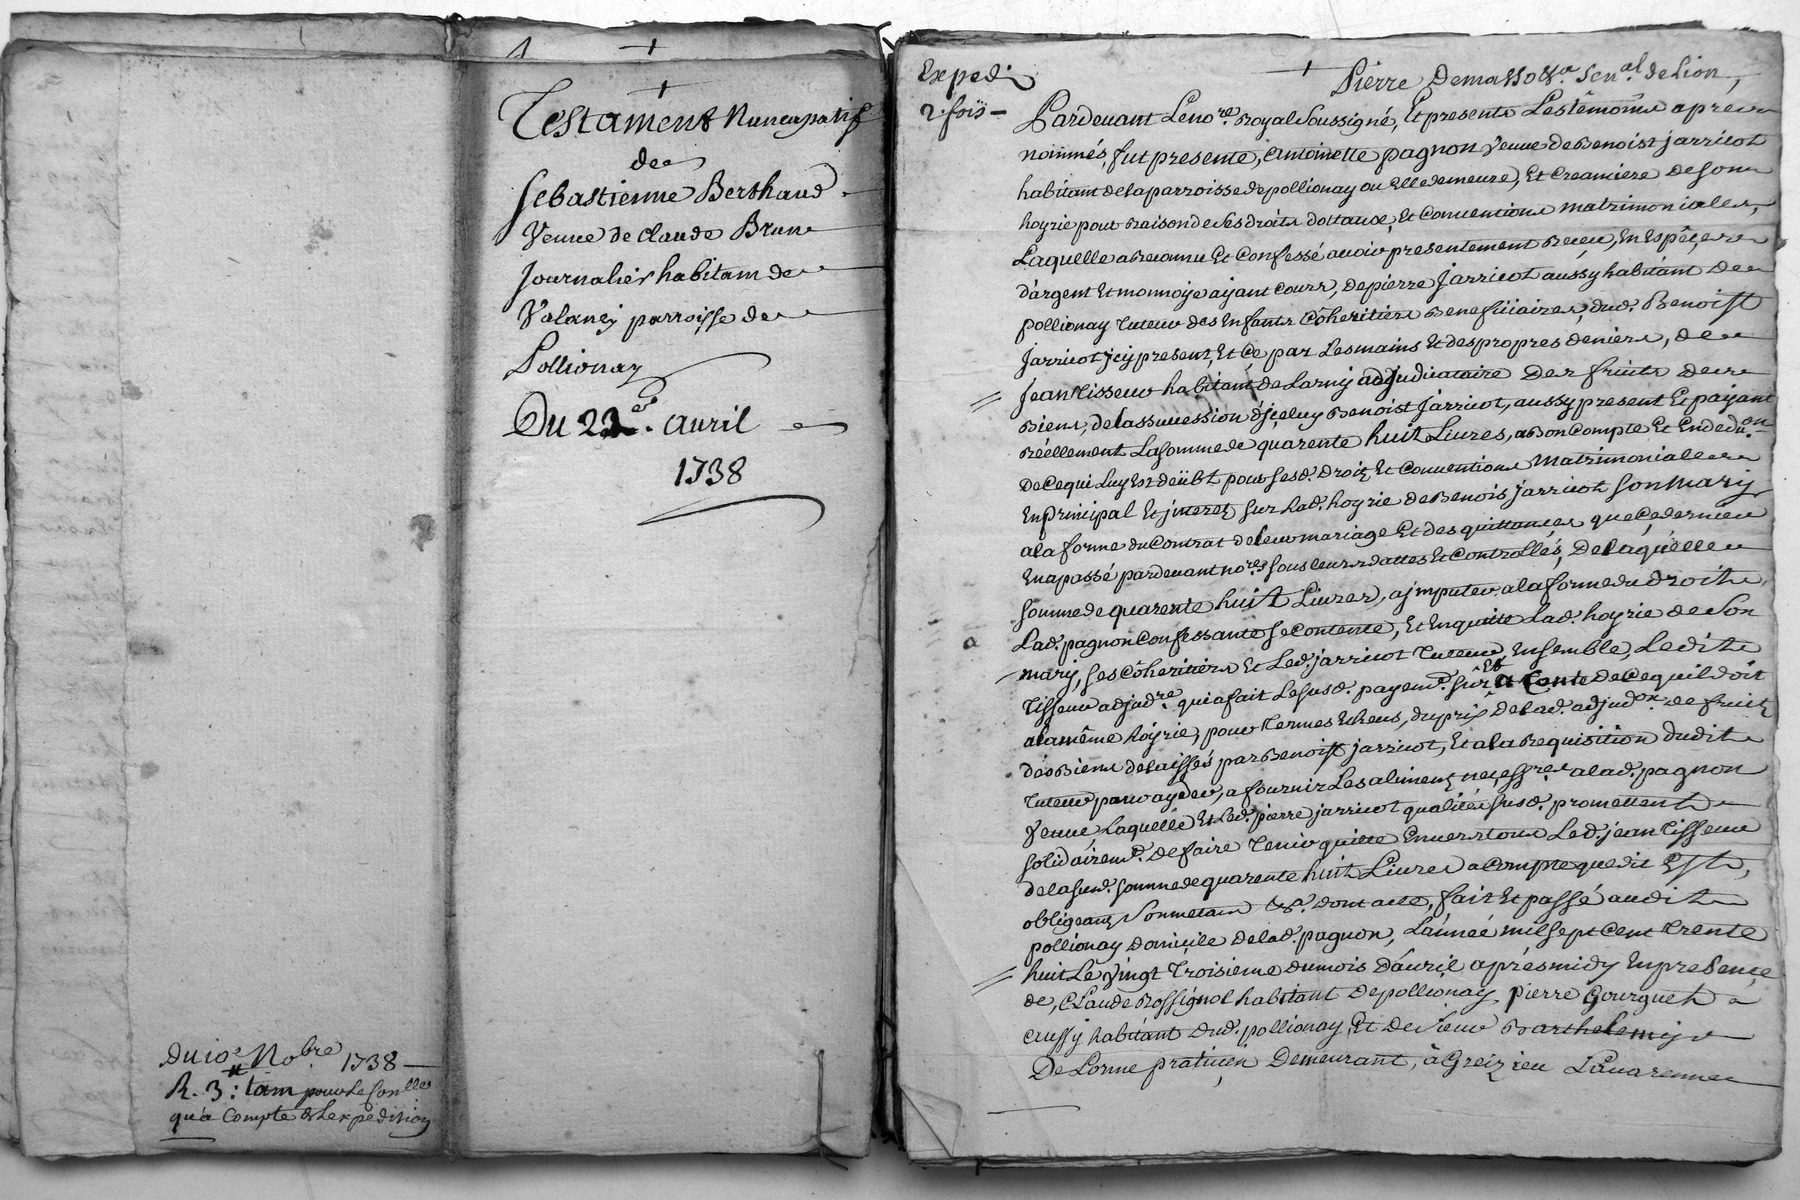 Testament Nuncupatif
de
Sebastienne Berthaud
Veuve de Claude Brun
Journalier habitant de
Valancy parroisse de
Pollionay
Du 22e. avril
1738
Du 10e Nobre 1738
R. 3: tam pour le Conlle
qu'a Compte & Lexpedition
Exped.
2. fois
Pierre Sen.al de Lion
Pardevant Le no.re Royal Soussigné, Et presents Les témoins apres
nommés, fut presente, Antoinette pagnon Veuve de Benoist jarricot
habitant de la parroisse de pollionay ou Elle demeure, Et Creamiere de Son
hoyrie pour Raison de Ses droits dottaux, Et Conventions matrimoniales,
Laquelle a Reconnu Et Confessé avoir presentement Reçeu, En Espêçes
d'argent Et monnoye ayant Cours, de pierre Jarricot aussy habitant de
pollionay tuteur des Enfants Côheritiers Beneficiaires, dud. Benoist
Jarricot jcy present, Et Ce par Les mains Et des propres deniers, de
Jean Tisseur habitant de Larny adjudicataire Des fruits des
Biens, de la Succession d'jceluy Benoist Jarricot, aussy present Et payant
Réellement La somme de quarente huit Livres, a Bon Compte Et En dedu.on
De Ce qui Luy Est deübt pour Ses d. Droits Et Conventions Matrimoniales
En principal Et jnterez Sur Lad. hoyrie de Benois jarricot Son Mary
a la forme du Contrat de leur mariage Et des quittances que Ce dernier
En a passé pardevant no.res Sous leurs dattes Et Controllés, De laquelle
Somme de quarente huit Livres, a jmputer a la forme du droit
Lad. pagnon Confessante Se Contente, Et En quitte Lad. hoyrie de Son
mary, Ses Côheritiers Et Led. jarricot Tuteur, Ensemble, Ledit
Tisseur adjud.re qui a fait Le Susd. payem.t Sur Et a Conte de Ce qu'il doit
a la même hoyrie, pour Termes Echeus, du prix de lad. adjud.on de fruits
des Biens delaissés par Benoist jarricot, Et a la Requisition dudit
tuteur pour ayder, a fournir Les alimens neçess.res a lad. pagnon
Veuve, Laquelle Et Led. pierre jarricot qualités Susd. promettent
Solidairem.t De faire Tenir quitte Envers tous Led. jean Tisseur
de la Sud. Somme de quarente huit Livres a Compte que dit Est,
obligeans Soumetans &a. Dont acte, fait Et passé audit
pollionay Domicile de lad. pagnon, L'année mil Sept Cent Trente
huit Le Vingt Troisieme du mois D'avril aprés midy En presençe
de, Claude Rossignol habitant De pollionay, Pierre Gourguet
aussy habitant Dud. pollionay, Et de Sieur Barthelemy
De Lorme praticien Demeurant, à Greizieu La Varenne